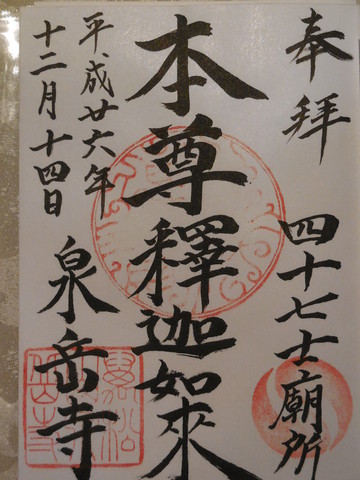 奉拝
四十七士廟所
本尊釋迦如來
平成廿六年
十二月十四日
泉岳寺